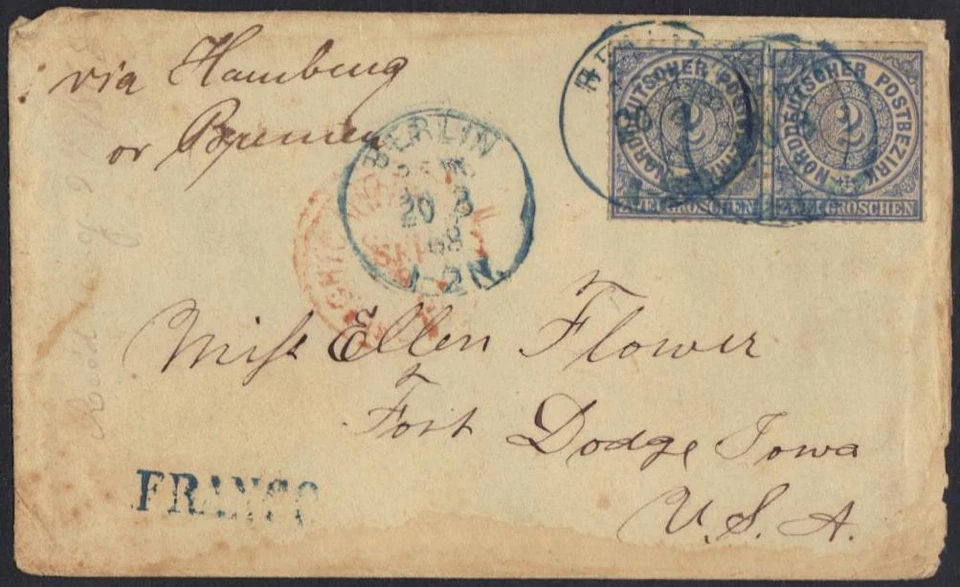 via Hamburg
or Bremen
BERLIN
20 8
68
1-2N.
NORDDEUTSCHER POSTBEZIRK
2
ZWEI GROSCHEN
NORDDEUTSCHER POSTBEZIRK
2
ZWEI GROSCHEN
CHIC
SEP
Miss Ellen Flower
Fort Dodge Iowa
U. S. A.
FRANCO